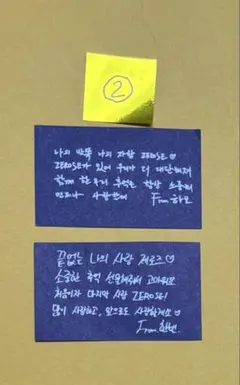 ②
나의 반쪽 나의 자랑 ZEROSE♡
ZEROSE가 있어 우리가 더 대단해져
함께 한 추억 항상 소중해
언제나 사랑한다 From.하오
끝없는 나의 사랑 제로즈♡
소중한 추억 선물해줘서 고마워요
처음이자 마지막 사랑 ZEROSE!
많이 사랑하고, 앞으로도 사랑할게요♡
From.한빈